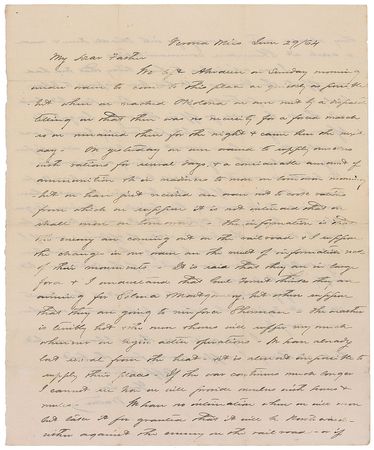 Verona Miss June 29/64
My Dear Father
We left Aberdeen on Sunday morning
under orders to come to this place as quickly as possible
but when we reached Okolona we were met by a dispatch
telling us that there was no necessity for a forced march
so we remained there for the night & came here the next
day. On yesterday we were ordered to supply ourselves
with rations for several days, & a considerable amount of
ammunition & be in readiness to move on tomorrow morning
but we have just received an order not to cook rations
from which we suppose it is not intended that we
shall move on tomorrow. The information is that
the enemy are coming out on the railroad & I suppose
the change in our orders are the result of information
of their movements. It is said that they are in large
force & I understand that Genl Forrest thinks they are
aiming for Selma & Montgomery, but others suppose
that they are going to reinforce Sherman. The weather
is terribly hot & the men & horses will suffer very much
when we begin active operations. We have already
lost several from the heat & it is almost impossible to
supply their places. If the war continues much longer
I cannot see how we will provide ourselves with horses &
mules. We have no intimation when we will move
but take it for granted that it will be
either against the enemy on the railroad or if